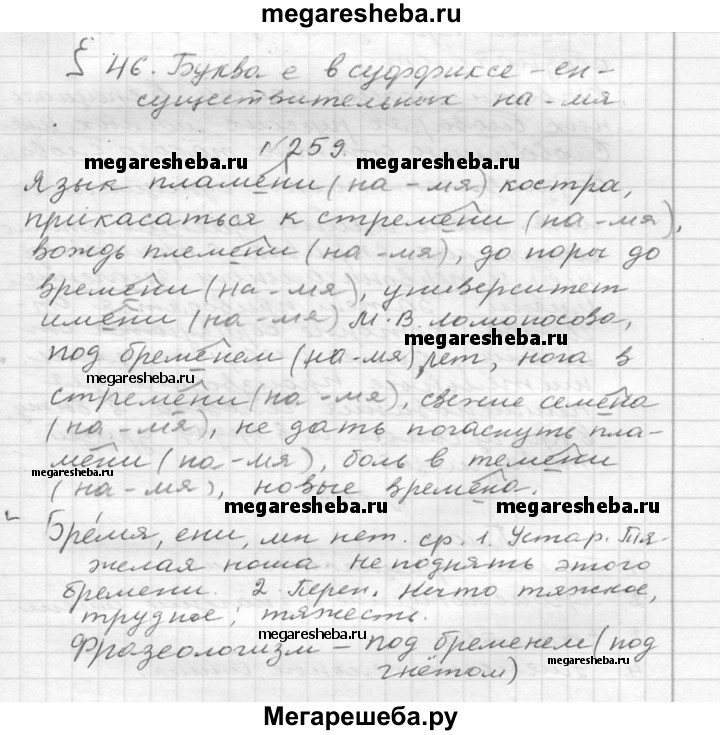 megaresheba.ru
§ 46. Буква е в суффиксе -ен-
существительных на -мя.
№ 259.
megaresheba.ru megaresheba.ru
Язык пламени (на -мя) костра,
прикасаться к стремени (на -мя),
вождь племени (на -мя), до поры до
времени (на -мя), университет
имени (на -мя) М.В. Ломоносова,
megaresheba.ru
под бременем (на -мя) лет, нога в
megaresheba.ru
стремени (на -мя), свежие семена
(на -мя), не дать погаснуть пла-
мени (на -мя), боль в темени
megaresheba.ru
(на -мя), новые времена.
megaresheba.ru megaresheba.ru
Бремя, ени, мн нет. ср. 1. Устар. Тя-
желая ноша. Не поднять этого
бремени. 2. Перен. Нечто тяжкое,
трудное; тяжесть.
megaresheba.ru
Фразеологизм - под бременем (под
гнётом)
megaresheba.ru
Мегарешеба.ру